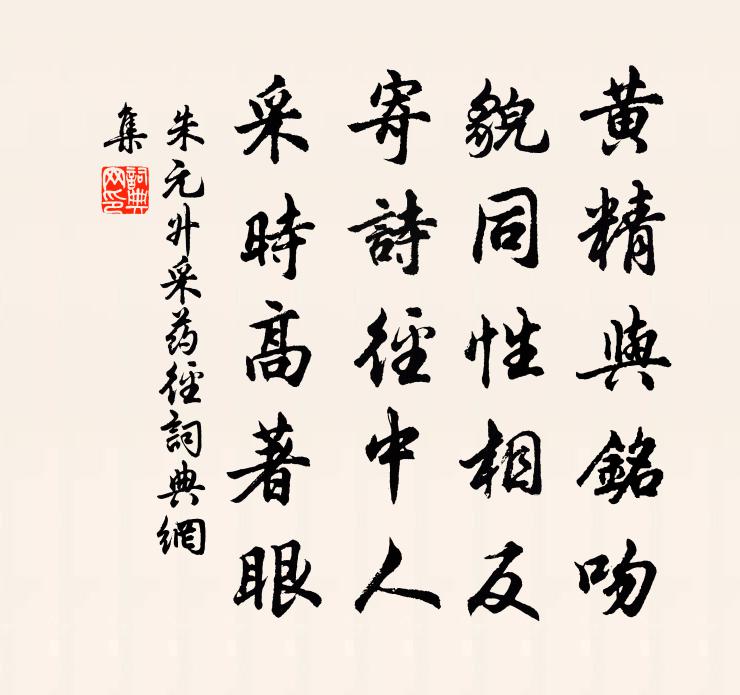 黄精與銘吻
貌同性相反
寄詩徑中人
采時高著眼
朱元升采药徑詞典網
集
詞典網印